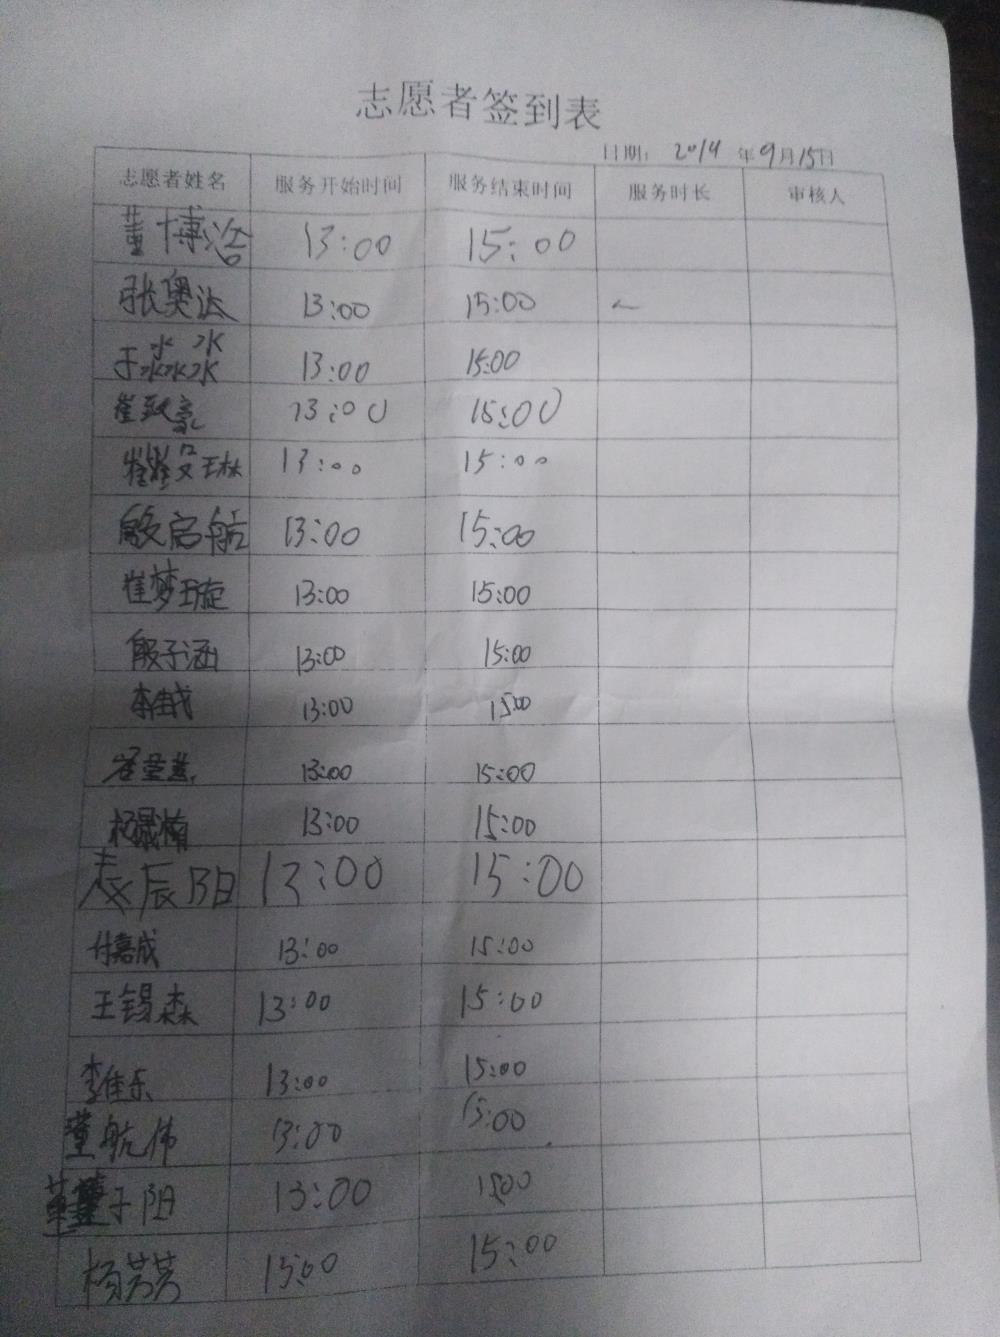 志愿者签到表
日期: 2014 年9月15日
志愿者姓名 服务开始时间 服务结束时间 服务时长 审核人
董博浩 13:00 15:00
张奥达 13:00 15:00
于淼淼 13:00 15:00
崔致豪 13:00 15:00
崔 13:00 15:00
殷启航 13:00 15:00
崔梦璇 13:00 15:00
殷子涵 13:00 15:00
李佳 13:00 1500
崔莹 13:00 15:00
杨晟楠 13:00 15:00
辰阳 13:00 15:00
付嘉成 13:00 15:00
王锡森 13:00 15:00
李佳乐 13:00 15:00
董航伟 13:00 15:00
董子阳 13:00 1500
杨芳芳 15:00 15:00